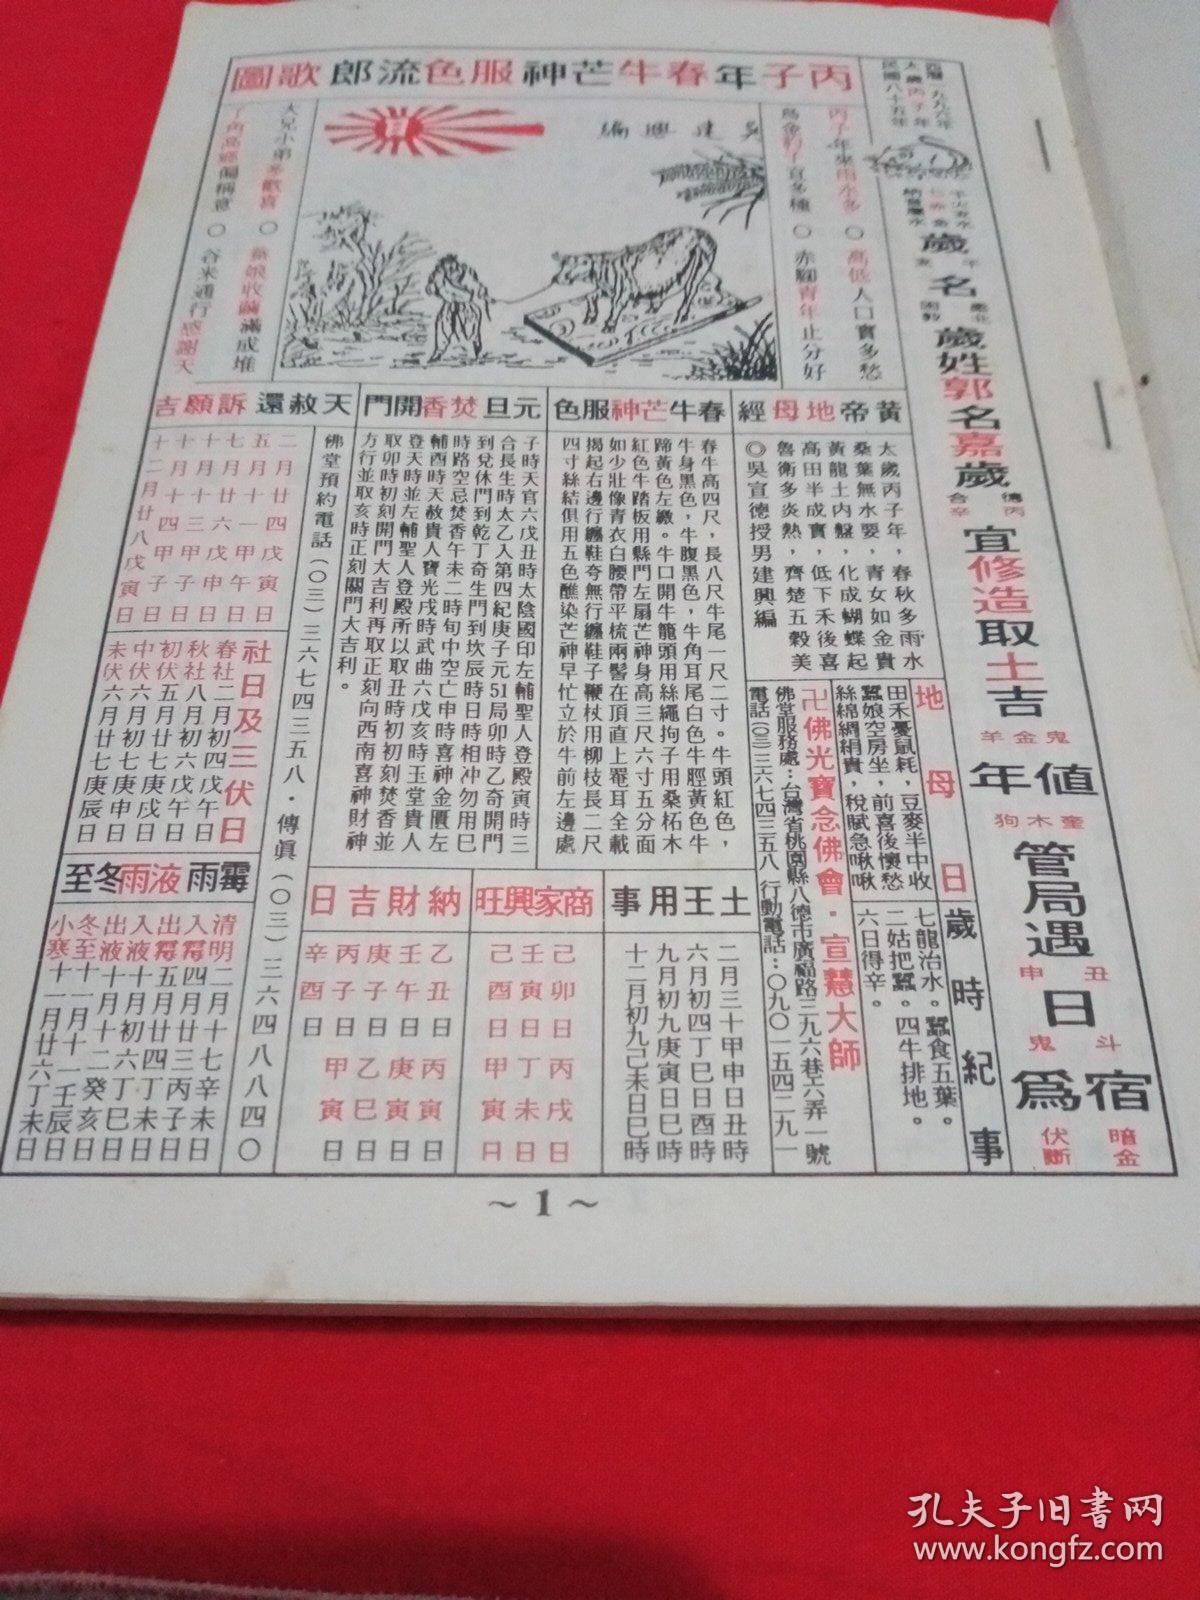 丙子年春牛芒神服色流郎歌圖
西曆一九九六年
太歲丙子年
民國八十五年
歲名
歲姓郭名嘉歲
宜修造取土吉
鬼金羊
奎木狗
值年
管局遇日
丑申
斗鬼
宿為
暗金
伏斷
丙子年來雨水多○高低人口實多愁
烏金豹子宜多種○赤腳青年止分好
吳建興編
大兄小弟多歡喜○蠶娘收繭滿成堆
丫角高經偏稱意○谷米通行感謝天
黃帝地母經
太歲丙子年，春秋多雨水
桑葉無水要，青女如金貴
黃龍土內盤，化成蝴蝶起
高田半成實，低下禾後喜
魯衛多炎熱，齊楚五穀美
◎吳宣德授男建興編
地母曰
田禾憂鼠耗，豆麥半中收
蠶娘空房坐，前喜後懷愁
絲綿綢絹貴，稅賦急啾啾
歲時紀事
七龍治水。蠶食五葉。
二姑把蠶。四牛排地。
六日得辛。
卍佛光寶念佛會．宣慧大師
佛堂服務處：台灣省桃園縣八德市廣福路三九六巷六弄一號
電話(〇三)三六七四三五八 行動電話：〇九〇一五四二九一
春牛芒神服色
春牛高四尺，長八尺牛尾一尺二寸。牛頭紅色，
牛身黑色，牛腹黑色，牛角耳尾白色牛脛黃色牛
蹄黃色左繳。牛口開牛籠頭用絲繩拘子用桑柘木
紅色牛踏板用縣門左扇芒神身高三尺六寸五分面
如少壯像青衣白腰帶平梳兩髻在頂直上罨耳全載
揭起右邊行纏鞋夸無行纏鞋子鞭杖用柳枝長二尺
四寸絲結俱用五色醮染芒神早忙立於牛前左邊處
元旦焚香開門
子時天官六戊丑時太陰國印左輔聖人登殿寅時三
合長生時太乙入第四紀庚子元51局卯時乙奇開門
到兌休門到乾丁奇生門到坎辰時日時相冲勿用巳
時路空忌焚香午未二時旬中空亡申時喜神金匱左
輔酉時天赦貴人寶光戌時武曲六戊亥時玉堂貴人
登天時並左輔聖人登殿所以取丑時初初刻焚香並
取卯時初刻開門大吉利再取正刻向西南喜神財神
方行並取亥時正刻關門大吉利。
天赦還訴願吉
二月廿四戊寅日
五月十一甲午日
七月廿六戊申日
十月十三甲子日
十月十四甲子日
十二月廿八戊寅日
佛堂預約電話(〇三)三六七四三五八．傳真(〇三)三六四八八四〇
社日及三伏日
春社二月初四戊午日
秋社八月初六戊午日
初伏五月廿五庚戌日
中伏六月初七庚申日
末伏六月廿七庚辰日
霉雨液雨冬至
清明二月十七辛未日
入霉四月廿三丙子日
出霉五月廿四丁未日
入液十月初六丁巳日
出液十月十二癸亥日
冬至十一月十一壬辰日
小寒十一月廿六丁未日
土王用事
二月三十甲申日丑時
六月初四丁巳日酉時
九月初九庚寅日巳時
十二月初九己未日巳時
商家興旺
己卯日 丙戌日
壬寅日 丁未日
己酉日 甲寅日
納財吉日
乙丑日 丙寅日
壬午日 庚寅日
庚子日 乙巳日
丙子日 甲寅日
辛酉日
~1~
孔夫子旧书网
www.kongfz.com